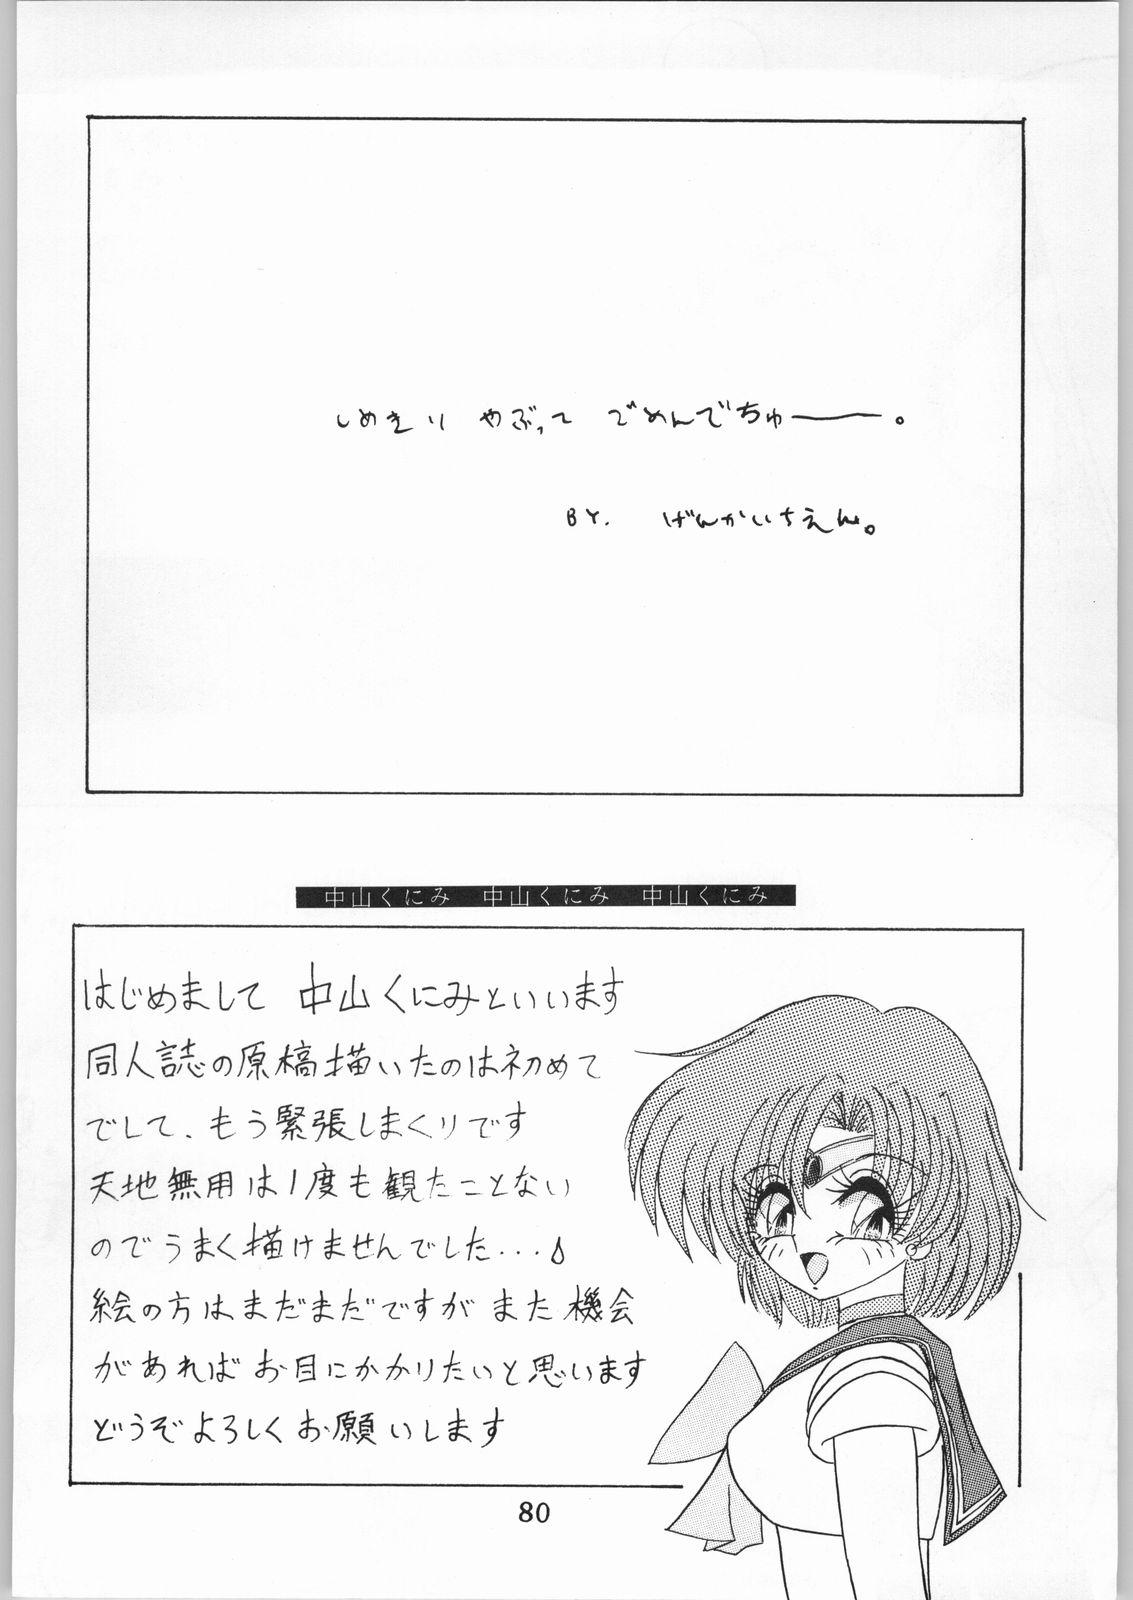 しめきり やぶって でめんでちゅー。
BY. げんかいちえん。
中山くにみ 中山くにみ 中山くにみ
はじめまして 中山くにみといいます
同人誌の原稿描いたのは初めて
でして、もう緊張しまくりです
天地無用は1度も観たことない
のでうまく描けませんでした...
絵の方はまだまだですが また機会
があれば お目にかかりたいと思います
どうぞよろしくお願いします
80